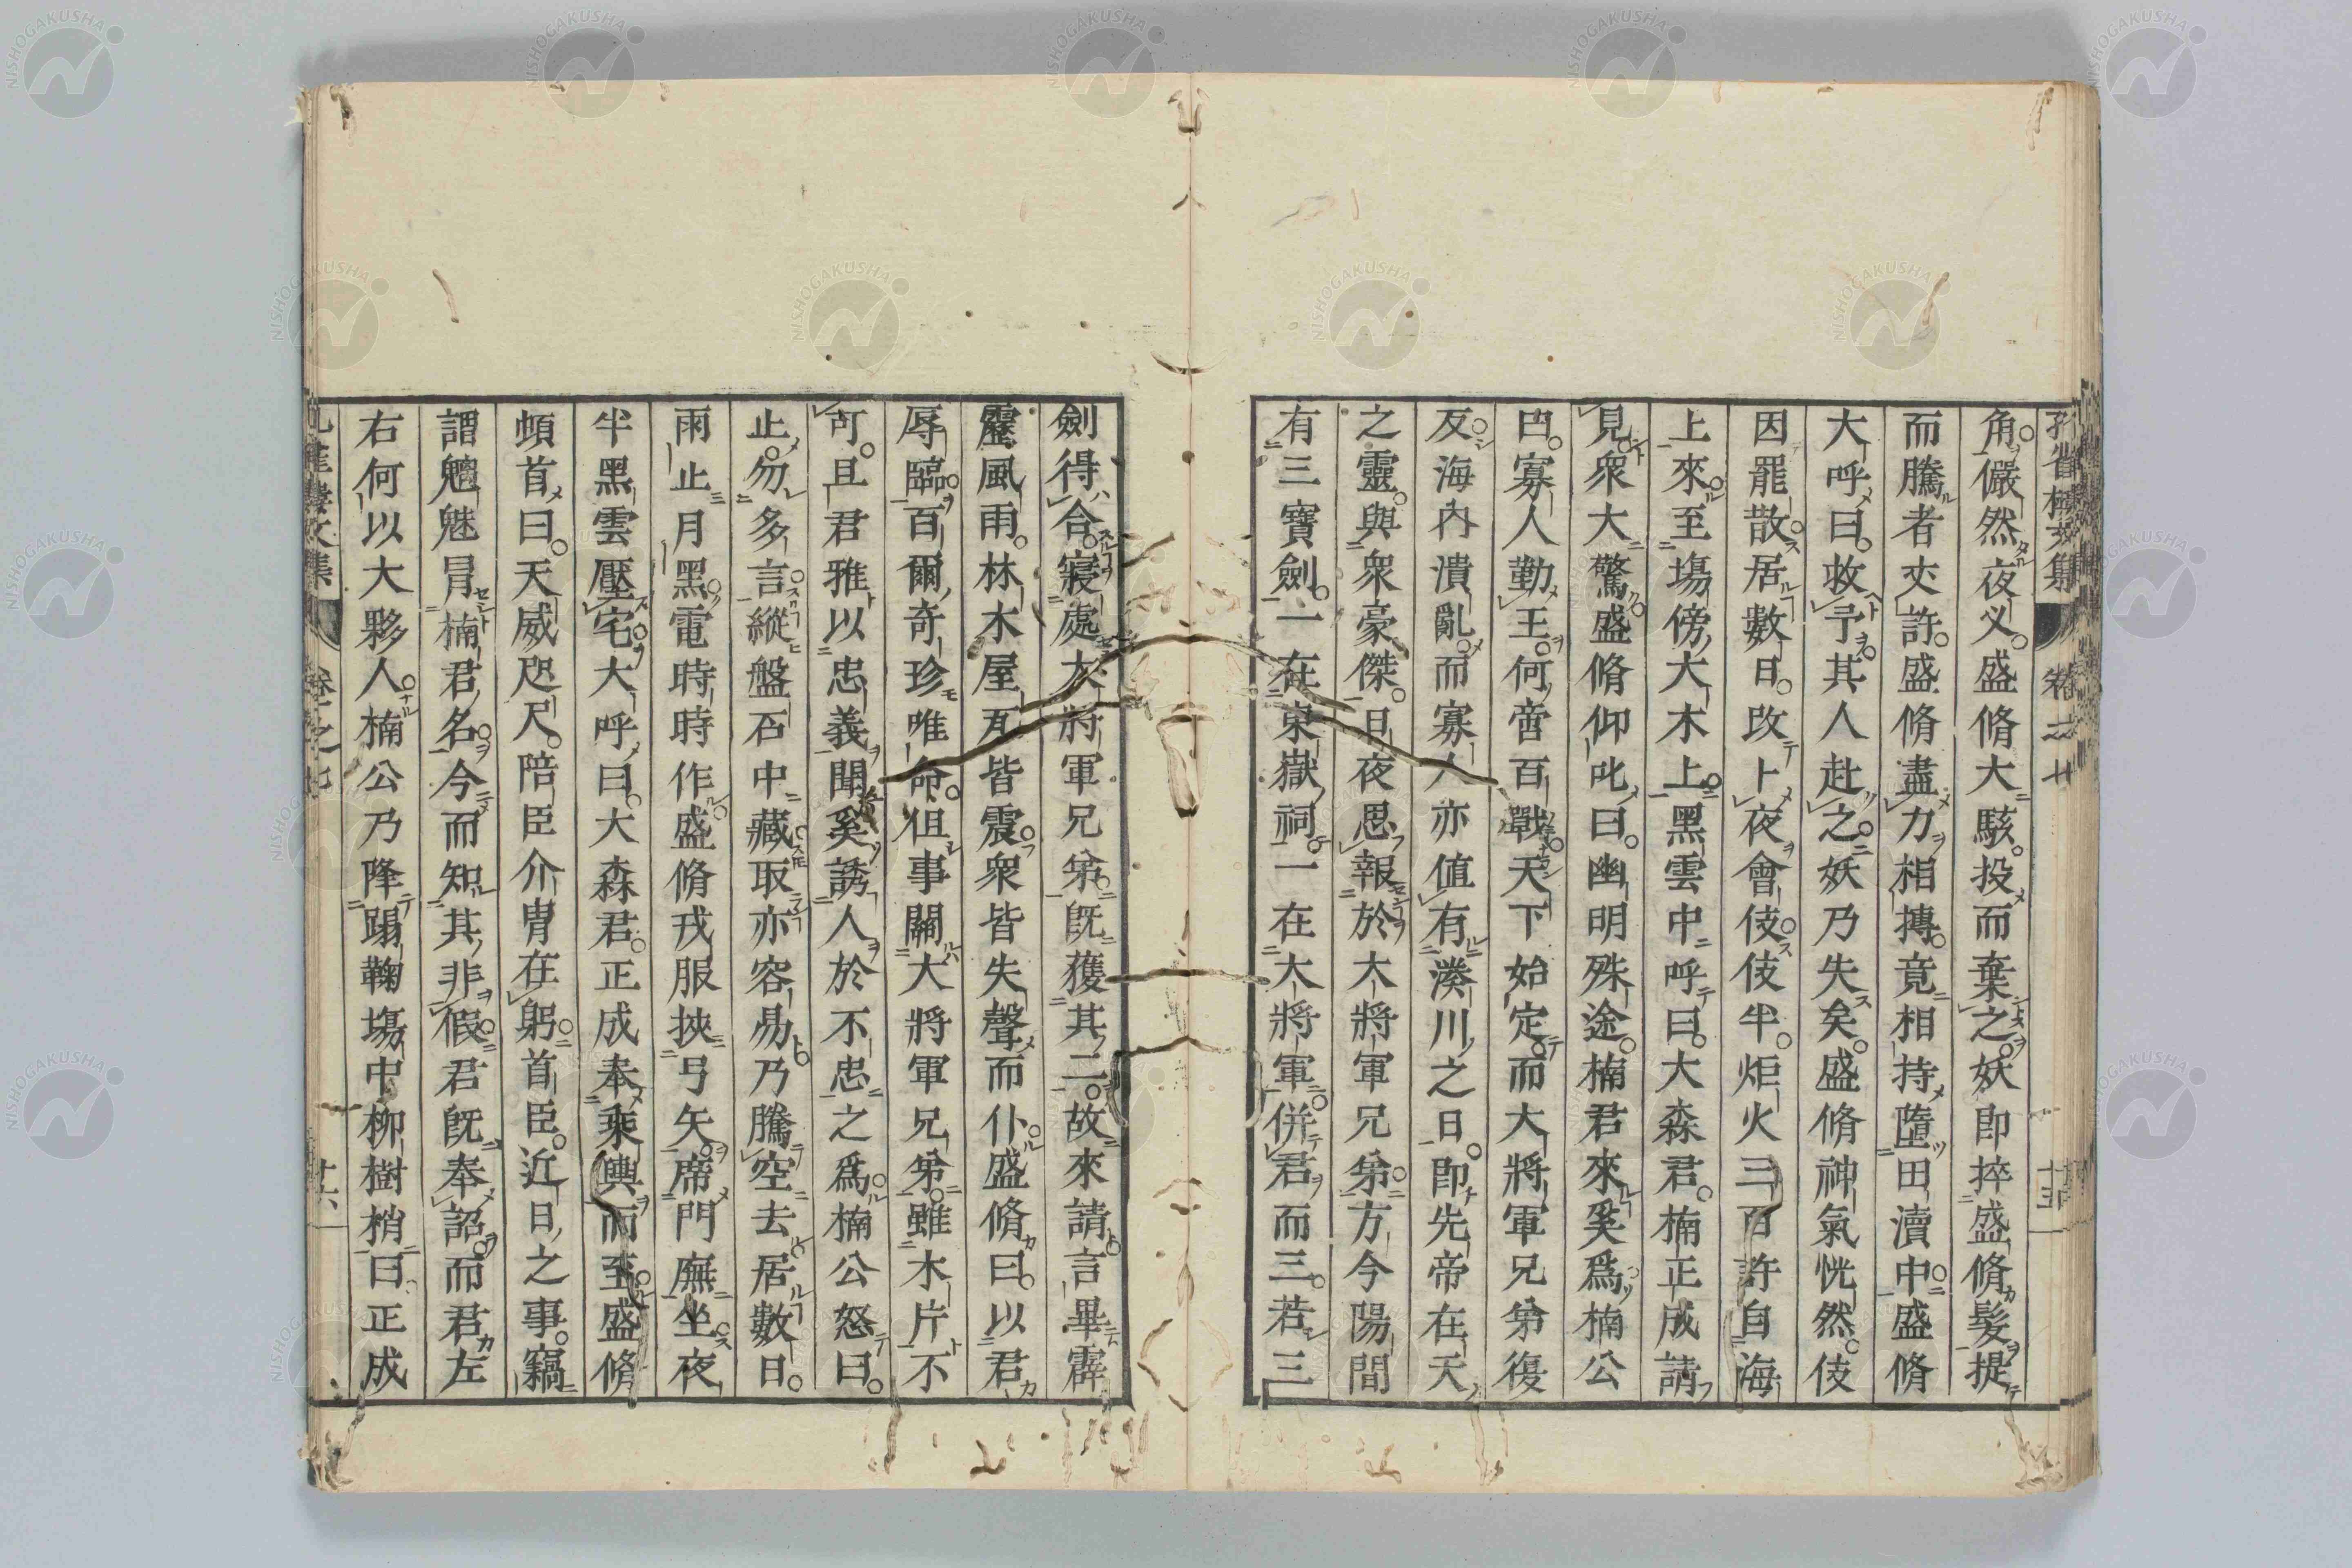 角儼然夜义盛脩大駭投而棄之妖即捽盛脩髮提
而騰者夾許盛脩盡力相摶竟相持墮田瀆中盛脩
大呼曰救予其人赴之妖乃失矣盛脩神氣恍然伎
因罷散居數日改卜夜會伎伎半炬火三百許自海
上來至塲傍大木上黑雲中呼曰大森君楠正成請
見衆大驚盛脩仰叱曰幽明殊途楠君來奚爲楠公
曰寡人勤王何啻百戰天下始定而大將軍兄弟復
反海內潰亂而寡人亦値有湊川之日即先帝在天
之靈與衆豪傑日夜思報於大將軍兄弟方今陽間
有三寶劍一在東嶽祠一在大將軍併君而三若三
劍得合寢處大將軍兄弟既獲其二故來請言畢霹
靂風雨林木屋瓦皆震衆皆失聲而仆盛脩曰以君
辱臨百爾奇珍唯命但事關大將軍兄弟雖木片不
可且君雅以忠義聞奚誘人於不忠之爲楠公怒曰
止勿多言縱盤石中藏取亦容易乃騰空去居數日
雨止月黑電時時作盛脩戎服挾弓矢席門廡坐夜
半黑雲壓宅大呼曰大森君正成奉乘輿而至盛脩
頓首曰天威咫尺陪臣介胄在躬首臣近日之事竊
謂魑魅冐楠君名今而知其非假君既奉詔而君左
右何以大夥人楠公乃降蹋鞠塲中柳樹梢曰正成
卷之七